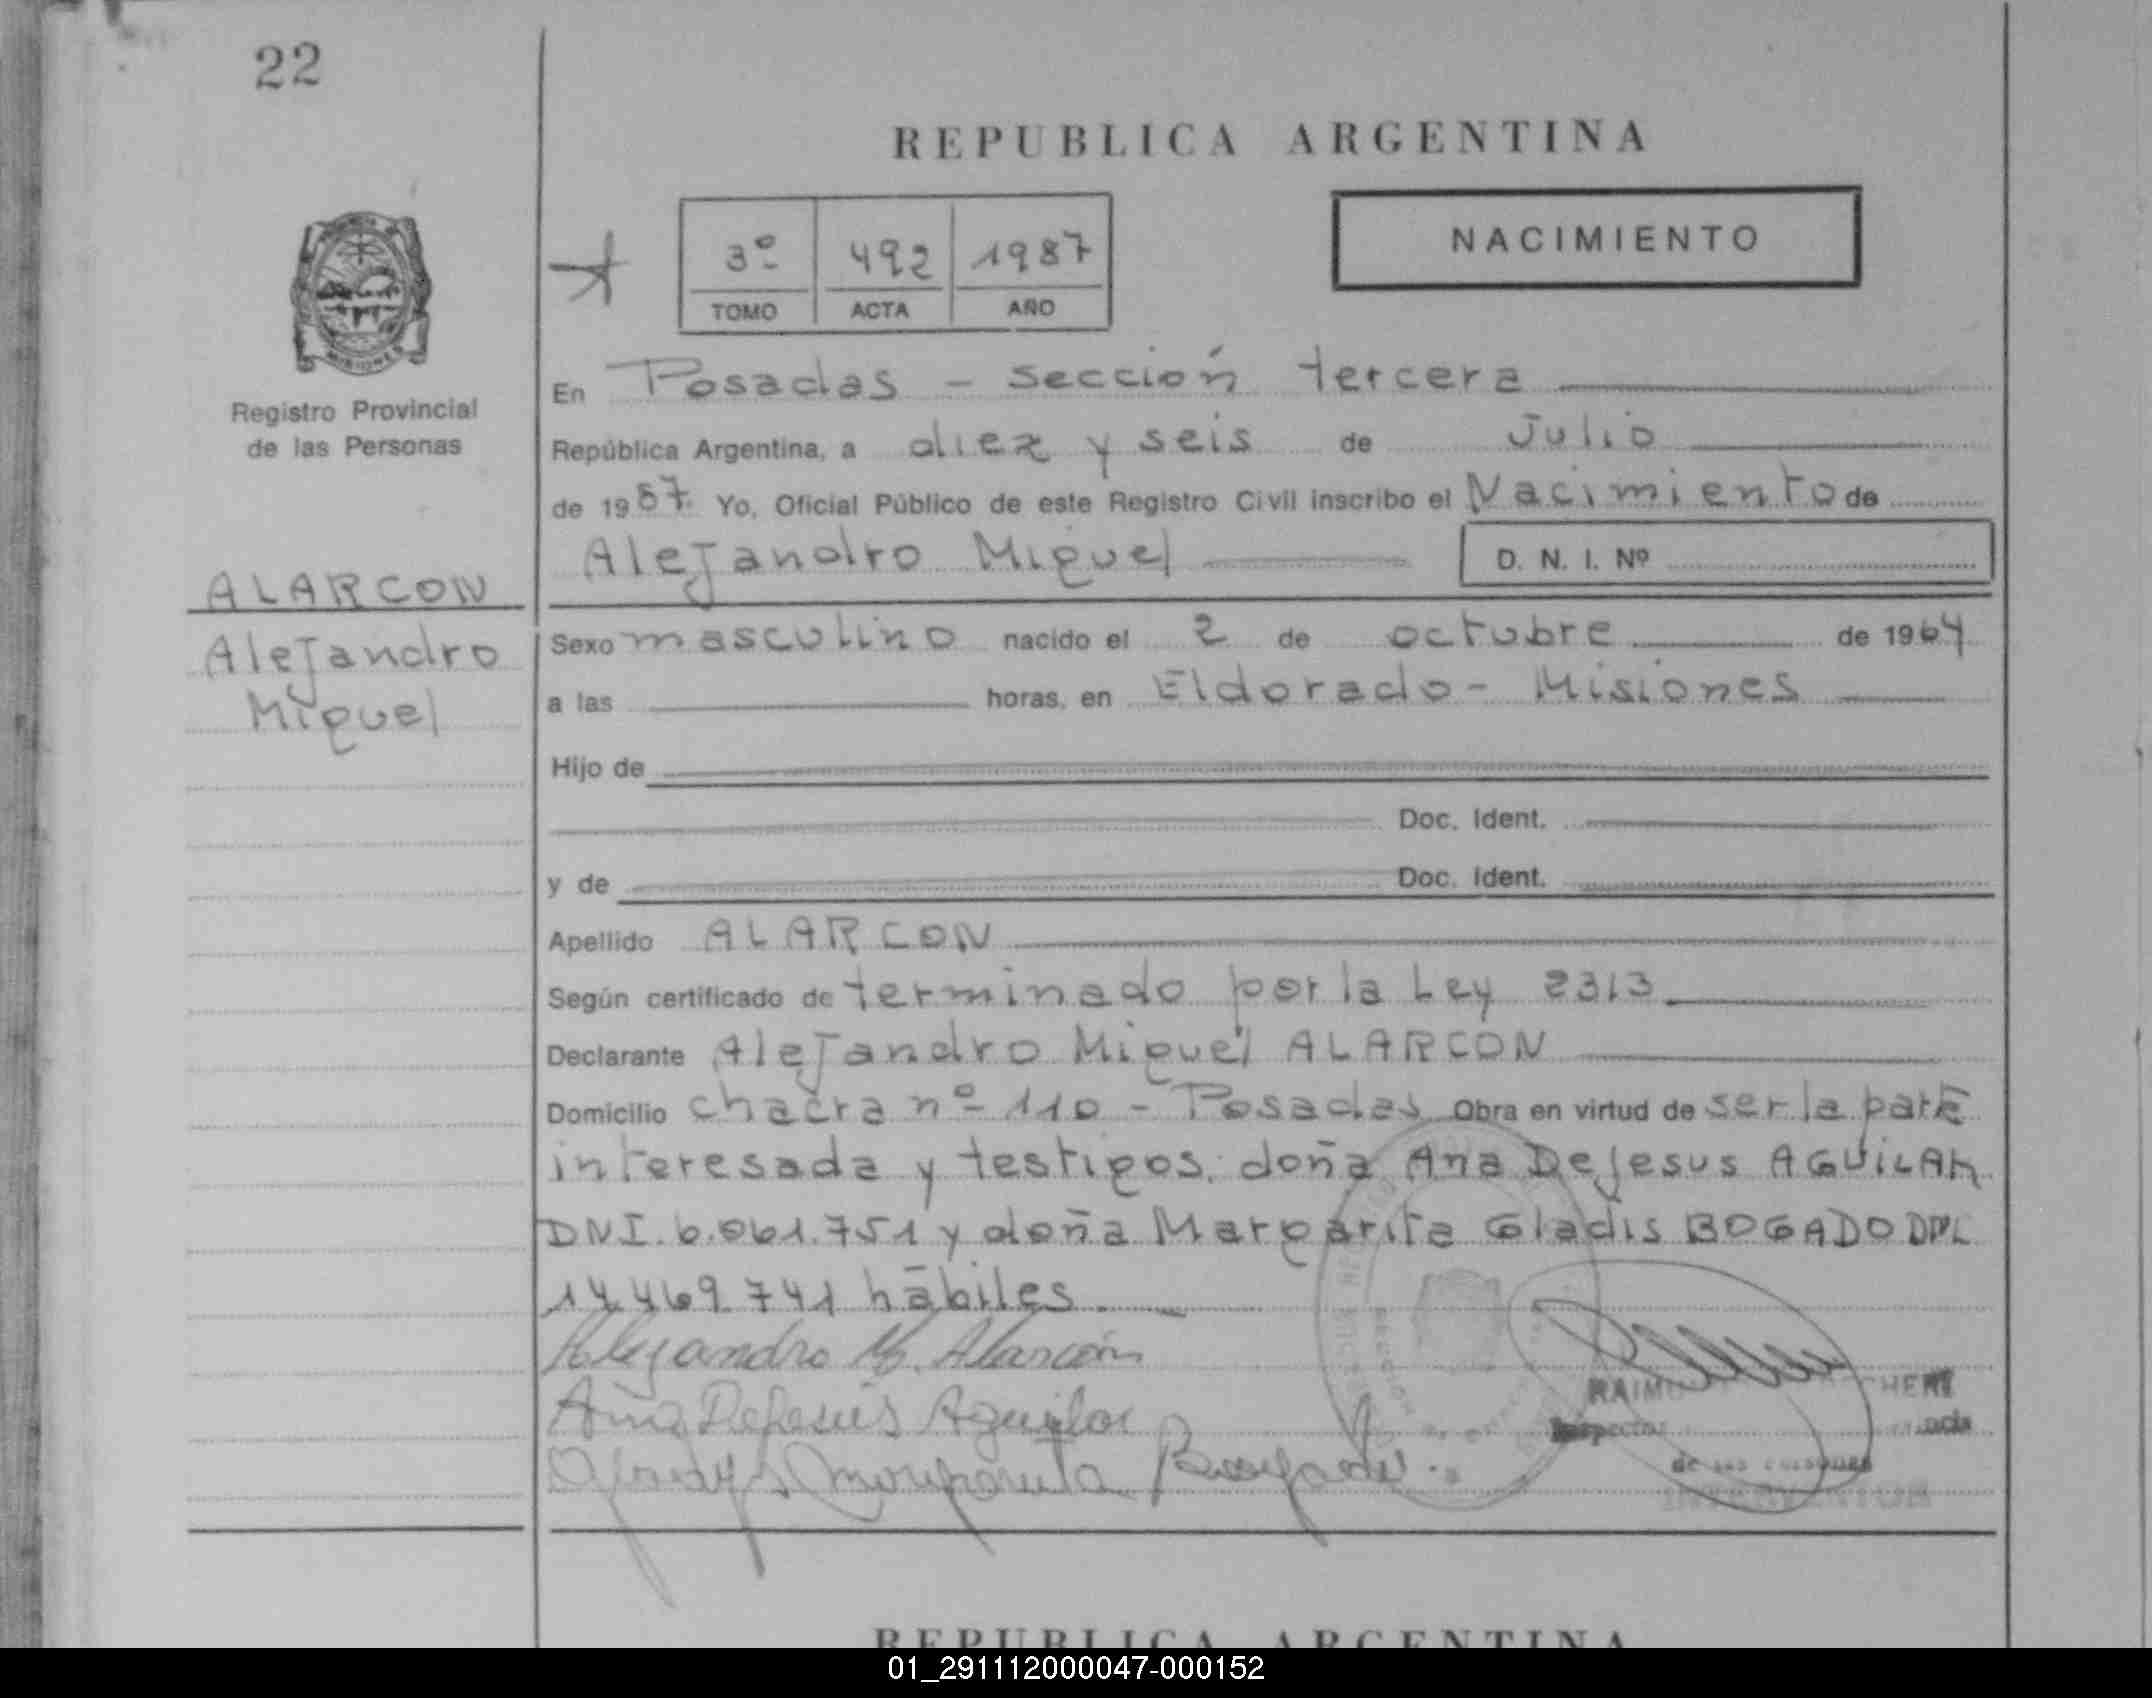 22
REPUBLICA ARGENTINA
3º 492 1987
TOMO ACTA AÑO
NACIMIENTO
MISIONES
Registro Provincial
de las Personas
ALARCON
Alejandro
Miguel
En Posadas - sección tercera
República Argentina, a diez y seis de Julio
de 1987. Yo, Oficial Público de este Registro Civil inscribo el Nacimiento de
Alejandro Miguel D. N. I. Nº
Sexo masculino nacido el 2 de octubre de 1964
a las horas, en Eldorado - Misiones
Hijo de
Doc. Ident.
y de Doc. Ident.
Apellido ALARCON
Según certificado de terminado por la Ley 2313
Declarante Alejandro Miguel ALARCON
Domicilio chacra nº 110 - Posadas Obra en virtud de ser la parte
interesada y testigos: doña Ana DeJesus AGUILAR
DNI. 6.061.751 y doña Margarita Gladis BOGADO DNI
14.469.741 hábiles.
Alejandro M. Alarcón
Ana DeJesús Aguilar
Gladys Margarita Bogado.
Inspector
de las
REPUBLICA ARGENTINA
01_291112000047-000152